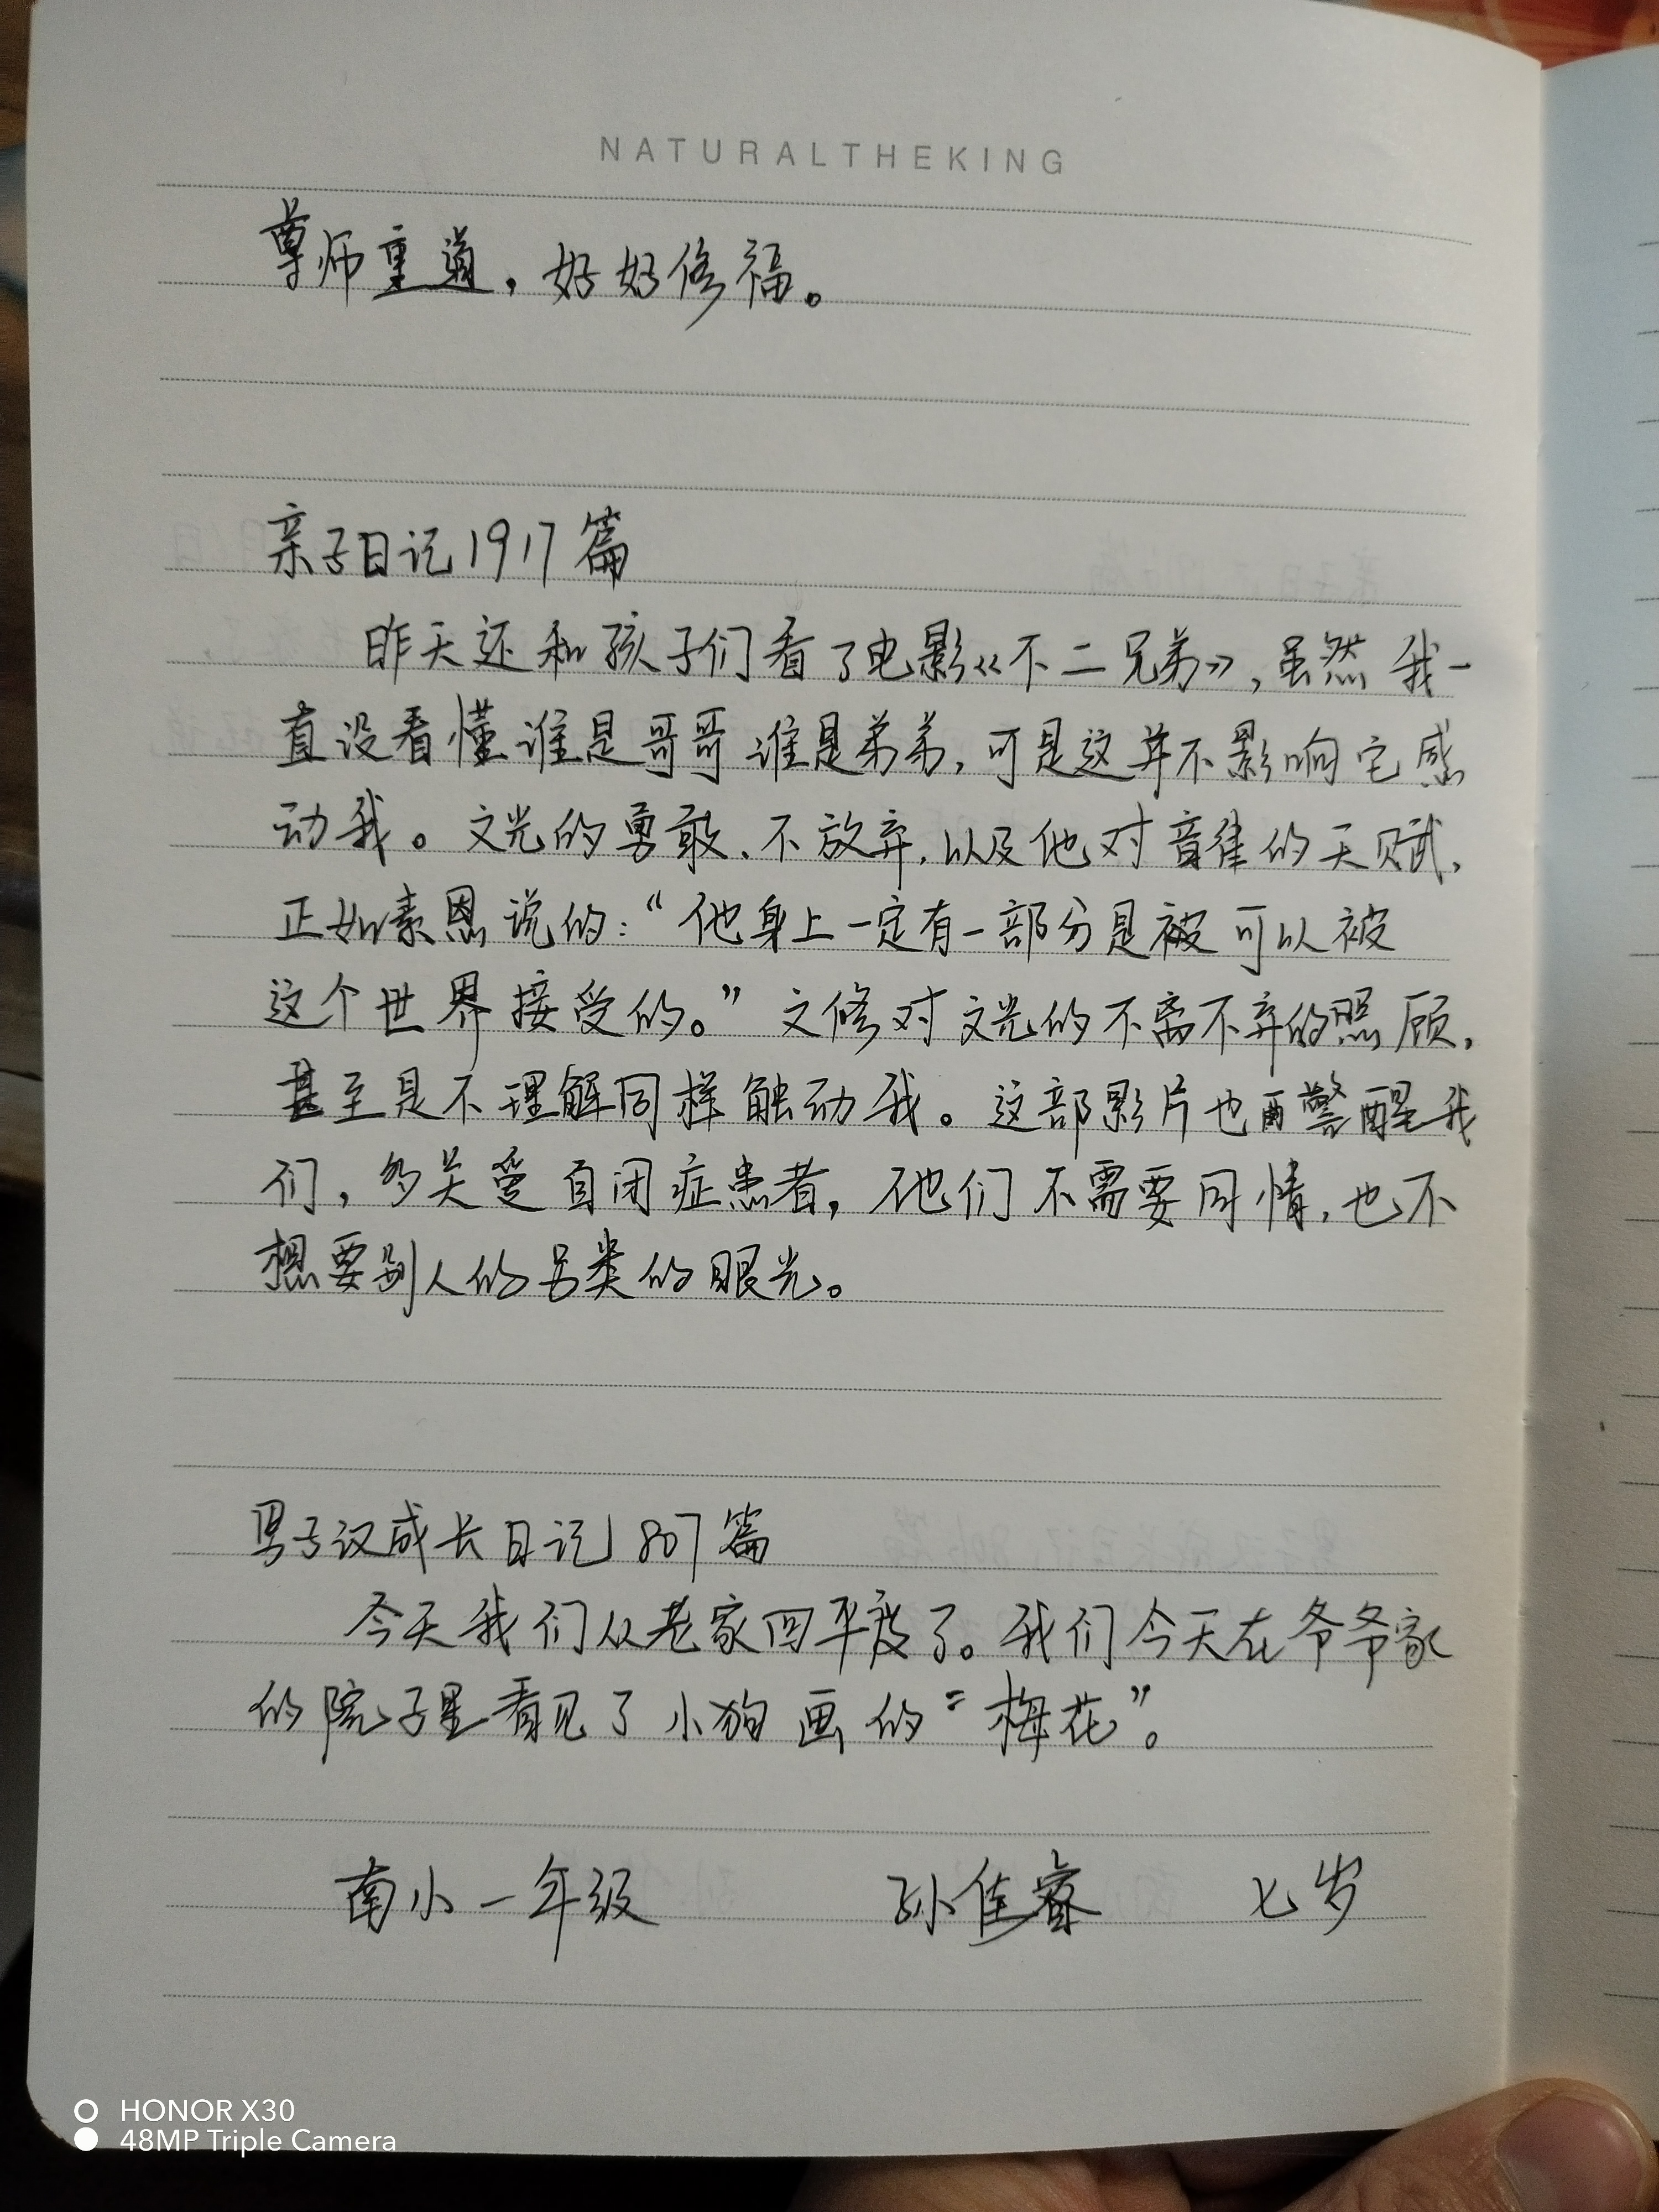 NATURALTHEKING
尊师重道，好好修福。
亲子日记1917篇
昨天还和孩子们看了电影《不二兄弟》，虽然我一
直没看懂谁是哥哥谁是弟弟，可是这并不影响它感
动我。文光的勇敢、不放弃，以及他对音律的天赋，
正如素恩说的：“他身上一定有一部分是被可以被
这个世界接受的。”文修对文光的不离不弃的照顾，
甚至是不理解同样触动我。这部影片也再警醒我
们，多关爱自闭症患者，他们不需要同情，也不
想要别人的另类的眼光。
男子汉成长日记1807篇
今天我们从老家回平度了。我们今天在爷爷家
的院子里看见了小狗画的“梅花”。
南小一年级 孙佳睿 七岁
HONOR X30
48MP Triple Camera